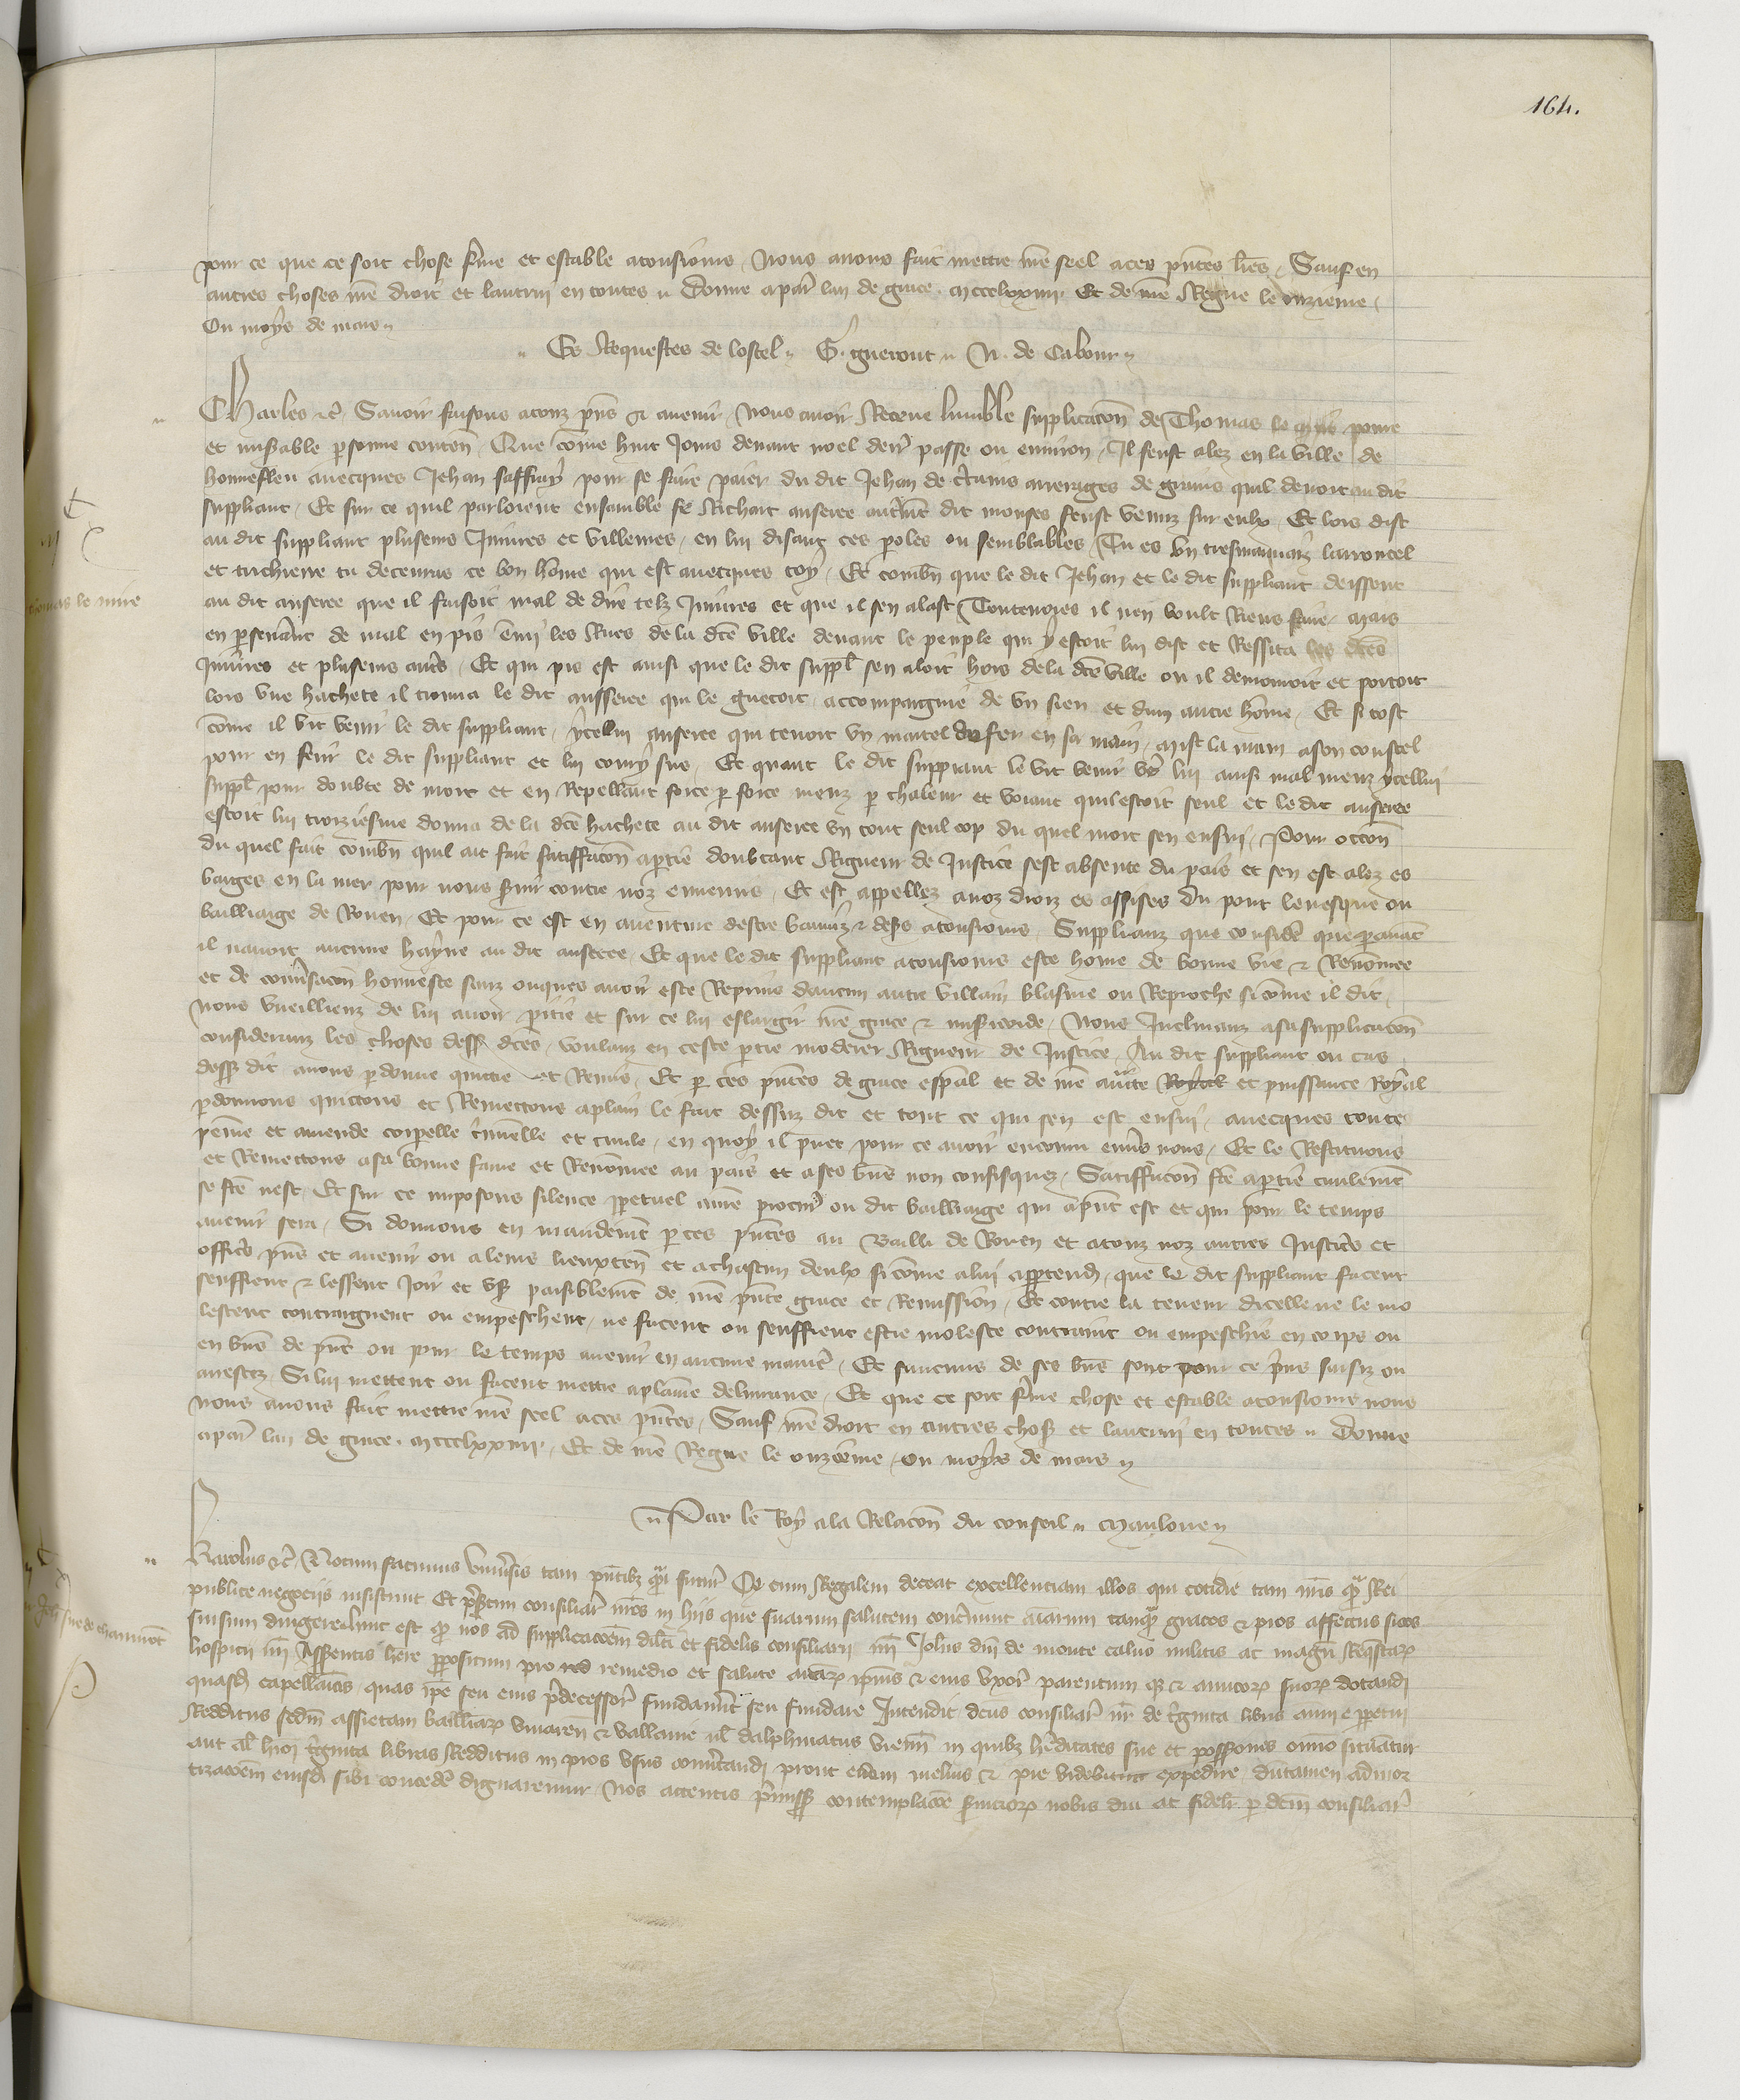 164.
pour ce que ce soit chose ferme et estable atousiours Nous avons fait mettre nre seel a ces pntes lres Sauf en
autres choses nre droit et lautrui en toutes Donne a par lan de grace mccclxxiiii Et de nre Regne le onzieme
Ou moys de mars
Es Requestes de lostel G. guerout N. de Cabour
Charles etc Savoir faisons a touz pns et avenir Nous avoir Receue lumble supplicacon de Thomas le mire povre
et miserable personne contenant Que comme huit Jours devant noel derr passe ou environ Il feust alez en la ville de
honnefleu avecques Jehan saffray pour se faire paier du dit Jehan de certains arrerages de grains quil devoit au dit
suppliant Et sur ce quil parloient ensamble feu Richart auseree autrement dit monses feust venuz sur eulx Et lors dist
au dit suppliant pluseurs Iniures et villenies en lui disant ces paroles ou semblables Tu es un tresmauvaiz larroncel
et trichierre tu decevras ce bon homme qui est avecques toy Et combn que le dit Jehan et le dit suppliant deissent
au dit auseree que il faisoit mal de dire telz Iniures et que il sen alast Toutevoies il nen voult Riens faire mais
thomas le mire
en perseverant de mal en pis emmi les Rues de la dce ville devant le peuple qui y estoit lui dist et Ressita les dces
Iniures et pluseurs autres Et qui pis est ainsi que le dit suppl sen aloit hors de la dce ville ou il demouroit et portoit
lors une hachete il trouva le dit ausseree qui le guetoit accompaignié de un sien et dun autre homme Et si tost
comme il vit venir le dit suppliant ycellui auseree qui tenoit un martel de fer en sa main mist la main a son coustel
pour en ferir le dit suppliant et lui courry sus Et quant le dit suppliant le vit venir vers lui ainsi mal menz ycellui
suppl pour doubte de mort et en Repellant force par force menz par chaleur et voiant quil estoit seul et le dit auseree
estoit lui troiziesme donna de la dce hachete au dit auseree un tout seul cop du quel mort sen ensui Pour occon
du quel fait combn quil ait fait satiffacon a partie doubtant Rigueur de Justice sest absente du pais et sen est alez es
barges en la mer pour nous servir contre noz ennemis Et est appellez a noz droiz es assises du pont levesque ou
bailliaige de Rouen Et pour ce est en aventure destre banniz atousiours Suppliant que consideré que paravant
il navoit aucune hayne au dit auseree Et que le dit suppliant a tousiours este home de bonne vie et Renommee
et de conversacon honneste sanz onques avoir este Reprins daucun autre villain blasme ou Reproche si comme il dit
nous vueillienz de lui avoir pitie et sur ce lui eslargir nre grace et misericorde Nous Inclinanz a sa supplicacon
consideranz les choses dess dces voulanz en ceste partie moderer Rigueur de Justice Au dit suppliant ou cas
dess dit avons pardonne quittie et Remis Et par ces pntes de grace espal et de nre aucte Royal et puissance Royal
pardonnons quictons et Remettons a plain le fait dessuz dit et tout ce qui sen est ensui avecques toute
peinne et amende corpelle crimnelle et civile en quoy il puet pour ce avoir encouru envers nous Et le Restituons
et Remettons a sa bonne fame et Renommee au pais et a ses biens non confisquez Satiffacon fce a partie civilement
se fce nest Et sur ce imposons silence ppetuel a nre procur ou dit bailliaige qui apnt est et qui pour le temps
avenir sera Si donnons en mandement par ces pntes au Bailli de Rouen et a touz noz autres Justiciers et
officiers pns et avenir ou a leurs lieuxten et a chascun deulx si comme a lui appartendra que le dit suppliant facent
seuffrent et lessent Joir et user paisiblement de nre pnte grace et Remission Et contre la teneur dicelle ne le mo
lestent contraignent ou empeschent ne facent ou seuffrent estre moleste contraint ou empeschié en corps ou
en biens de pnt ou pour le temps avenir en aucune manier Et saucuns de ses biens sont pour ce prins saisiz ou
arrestez Si lui mettent ou facent mettre a plaine delivrance Et que ce soit ferme chose et estable atousiours nous
nous avons fait mettre nre seel a ces pntes Sauf nre droit en autres choses et lautrui en toutes Donne
a par lan de grace mccclxxiiii Et de nre Regne le onzeeme ou moys de mars
Par le Roy a la Relacon du conseil Mauloue
Karolus etc Notum facimus universis tam pntibz quam futuris Qd cum Regalem deceat excellentiam illos qui cotidie tam nris quam Rei
publice negociis insistunt Et presertim consiliar nros in hiis que suarum salutem concernunt aiarum tanquam gratos et pios affectus suos
sursum dirigere hinc est qd nos ad supplicacoem dilci et fidelis consiliarii nri Johis dni de monte calvo militis ac magri Reqstar
hospicii nri Asserentis here propositum pro remedio et salute aiar ipius et eius uxor parentum et amicor suor dotandi
quasd capellanias quas ipe seu eius predecessores fundaverunt seu fundare Intendit dcus consiliar nr de triginta libris annui perpetui
Redditus sedm assietam bailliar vivaren et vallavie vel dalphinatus vienn in quibz hereditates sue et possessiones omnio situantur
aut al hmoi triginta libras Redditus in pios usus convertendi prout eidem melius et pie videbitur expedire dutamen admor
tizacoem eiusdi sibi concedere dignaremur Nos attentis premissis contemplacoe servicior nobis diu ac fideliter per dcm consiliar